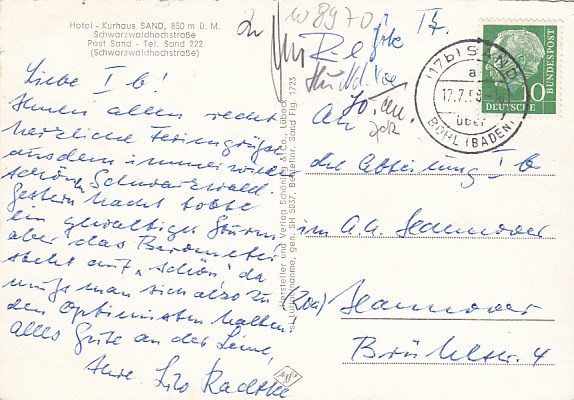 Hotel - Kurhaus SAND, 850 m ü. M.
Schwarzwaldhochstraße
Post Sand - Tel. Sand 222
(Schwarzwaldhochstraße)
Liebe I b!
Ihnen allen recht
herzliche Feriengrüße
aus dem immer wieder
schönen Schwarzwald.
Gestern Nacht tobte
ein gewaltiger Sturm
aber das Barometer
steht auf „schön" da
muß man sich also zu
den Optimisten halten.
Alles Gute an der Leine!
Ihre
Hersteller und Verlag Schöning & Co., Lübeck
Luftaufnahme, gen. SH 5037, Bestellnr. Sand Flg. 1723
DEUTSCHE
BUNDESPOST
(17b) SAND
a
17.7.59
über
BÜHL (BADEN)
An
die Abteilung I b
im A.A. Hannover
(20a) Hannover
Brühlstr. 4